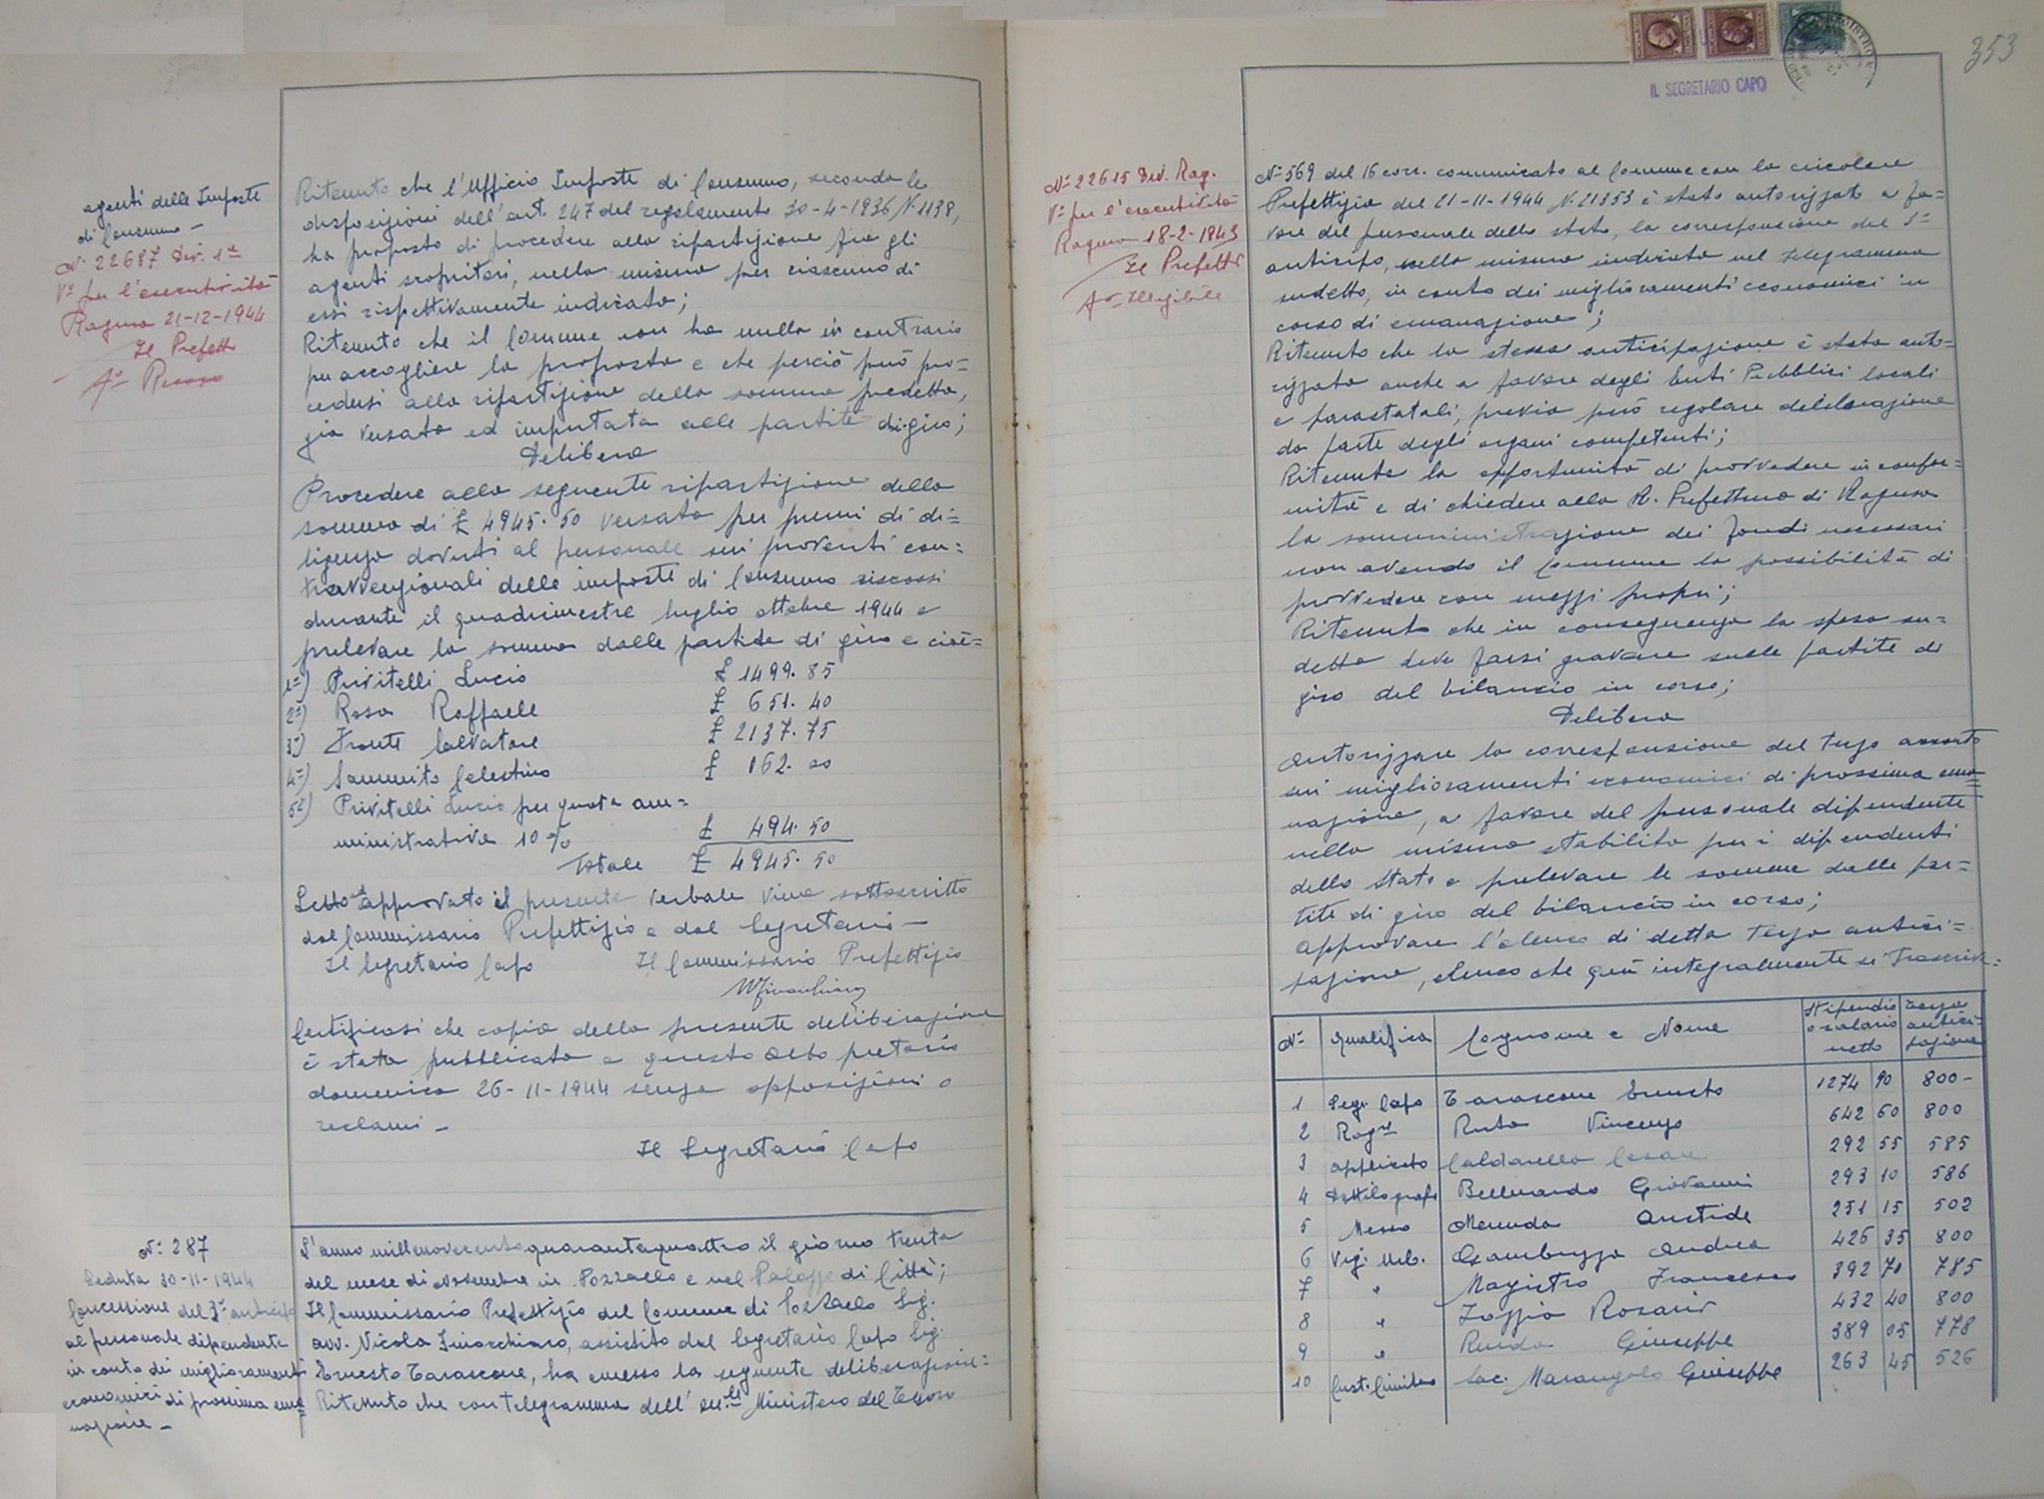 agenti delle Imposte
di Consumo -
N. 22687 Div. 1ª
Vº per l'esecutività
Ragusa 21-12-1944
Il Prefetto
Fº
Ritenuto che l'Ufficio Imposte di Consumo, secondo le
disposizioni dell'art. 247 del regolamento 30-4-1936 N. 1138,
ha proposto di procedere alla ripartizione fra gli
agenti scopritori, nella misura per ciascuno di
essi rispettivamente indicata;
Ritenuto che il Comune non ha nulla in contrario
per accogliere la proposta e che perciò può pro=
cedersi alla ripartizione della somma predetta,
già versata ed imputata alle partite di giro;
Delibera
Procedere alla seguente ripartizione della
somma di £ 4945.50 versata per premi di di=
ligenza dovuti al personale sui proventi con=
travvenzionali delle imposte di Consumo riscossi
durante il quadrimestre luglio ottobre 1944 e
prelevare la somma dalle partite di giro e cioè=
1º) Privitelli Lucio £ 1499.85
2º) Rosa Raffaele £ 651.40
3º) Fronte Salvatore £ 2137.75
4º) Sammito Celestino £ 162.00
5º) Privitelli Lucio per quota am=
ministrativa 10% £ 494.50
Totale £ 4945.50
Letto ed approvato il presente verbale viene sottoscritto
dal Commissario Prefettizio e dal Segretario -
Il Segretario Capo Il Commissario Prefettizio
Certificasi che copia della presente deliberazione
è stata pubblicata a questo Albo pretorio
domenica 26-11-1944 senza opposizioni o
reclami -
Il Segretario Capo
Nº 287
Seduta 30-11-1944
Concessione del 3º anticipo
al personale dipendente
in conto dei miglioramenti
economici di prossima ema=
nazione -
L'anno millenovecentoquarantaquattro il giorno trenta
del mese di novembre in Pozzallo e nel Palazzo di Città;
Il Commissario Prefettizio del Comune di Pozzallo Sig.
avv. Nicola Finocchiaro, assistito dal Segretario Capo Sig.
Ernesto Tarascone, ha emesso la seguente deliberazione=
Ritenuto che con telegramma dell' Ministero del Tesoro
353
IL SEGRETARIO CAPO
Nº 22615 Div. Rag.
Vº per l'esecutività
Ragusa 18-2-1945
Il Prefetto
Fº Illegibile
Nº 569 del 16 corr. comunicato al Comune con la circolare
Prefettizia del 21-11-1944 N. 21353 è stata autorizzata a fa=
vore del personale dello stato, la corresponsione del 3º
anticipo, nella misura indicata nel telegramma
sudetto, in conto dei miglioramenti economici in
corso di emanazione;
Ritenuto che la stessa anticipazione è stata auto=
rizzata anche a favore degli Enti Pubblici locali
e parastatali, previa però regolare deliberazione
da parte degli organi competenti;
Ritenuta la opportunità di provvedere in confor=
mità e di chiedere alla R. Prefettura di Ragusa
la somministrazione dei fondi necessari
non avendo il Comune la possibilità di
provvedere con mezzi propri;
Ritenuto che in conseguenza la spesa su=
detta deve farsi gravare sulle partite di
giro del bilancio in corso;
Delibera
Autorizzare la corresponsione del terzo acconto
sui miglioramenti economici di prossima ema=
nazione, a favore del personale dipendente
nella misura stabilita per i dipendenti
dello Stato e prelevare le somme dalle par=
tite di giro del bilancio in corso;
Approvare l'elenco di detta terza antici=
pazione, elenco che quì integralmente si trascrive=
Nº Qualifica Cognome e Nome Stipendio o salario netto Terza antici=pazione
1 Segr. Capo Tarascone Ernesto 1274 90 800 -
2 Ragre Ruta Vincenzo 642 60 800
3 Applicato Caldarella Cesare 292 55 585
4 Dattilografo Belluardo Giovanni 293 10 586
5 Messo Merenda Aristide 251 15 502
6 Vigi. Urb. Gambuzza Andrea 426 35 800
7 " Magistro Francesco 392 70 785
8 " Zoggia Rosario 432 40 800
9 " Ruda Giuseppe 389 05 778
10 Cust. Cimitero Sac. Marangolo Giuseppe 263 45 526